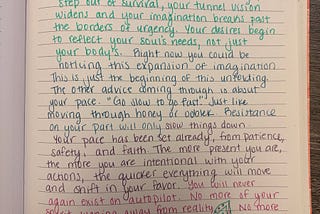 step out of survival, your tunnel vision
widens and your imagination breaks past
the borders of urgency. Your desires begin
to reflect your soul's needs, not just
your body's. Right now you could be
noticing this expansion of imagination.
This is just the beginning of this unfolding.
The other advice coming through is about
your pace. "Go slow to go fast." Just like
moving through honey or oobleck. Resistance
on your part will only slow things down
your pace has been set already, from patience,
safety, and faith. The more present you are,
the more you are intentional with your
actions, the quicker everything will move
and shift in your favor. You will never
again exist on autopilot. No more of your
away from reality. No more